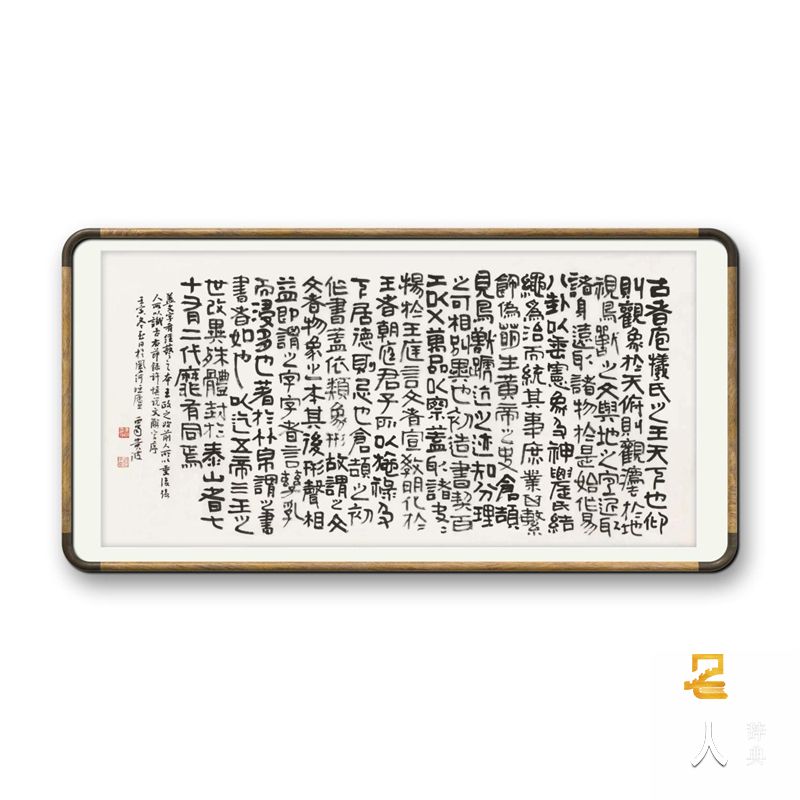 古者庖犧氏之王天下也仰
則觀象於天俯則觀灋於地
視鳥獸之文與地之宜近取
諸身遠取諸物於是始作易
八卦以垂憲象及神農氏結
繩為治而統其事庶業其繁
飾偽萌生黃帝之史倉頡
見鳥獸蹏迒之迹知分理
之可相別異也初造書契百
工以乂萬品以察蓋取諸夬
揚於王庭言文者宣教明化於
王者朝庭君子所以施祿及
下居德則忌也倉頡之初
作書蓋依類象形故謂之文
文者物象之本其後形聲相
益即謂之字字者言孳乳
而浸多也著於竹帛謂之書
書者如也以迄五帝三王之
世改異殊體封於泰山者七
十有二代靡能有同焉
蓋文字者經藝之本王政之始前人所以垂後後
人所以識古右節錄許慎說文解字序
壬寅冬至日於鳳河
人
辞典